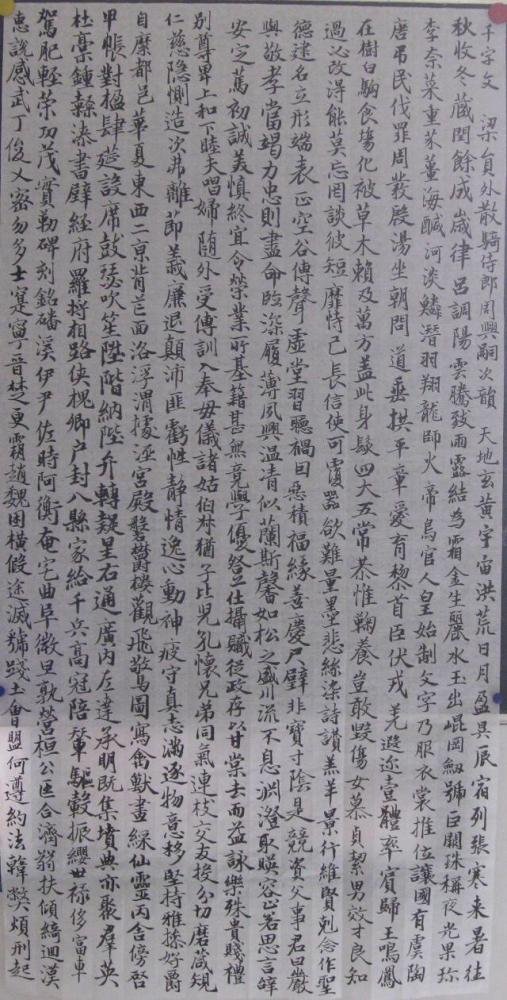 千字文 梁員外散騎侍郎周興嗣次韻 天地玄黃宇宙洪荒日月盈昃辰宿列張寒来暑往
秋收冬藏閏餘成歲律呂調陽雲騰致雨露結為霜金生麗水玉出崐岡劔號巨闕珠稱夜光果珍
李奈菜重芥薑海鹹河淡鱗潛羽翔龍師火帝鳥官人皇始制文字乃服衣裳推位讓國有虞陶
唐吊民伐罪周發殷湯坐朝問道垂拱平章愛育黎首臣伏戎羌遐迩壹體率賓歸王鳴鳳
在樹白駒食場化被草木賴及萬方盖此身髮四大五常恭惟鞠養豈敢毀傷女慕貞絜男效才良知
過必改得能莫忘罔談彼短靡恃己長信使可覆器欲難量墨悲絲染詩讚羔羊景行維賢剋念作聖
德建名立形端表正空谷傳聲虛堂習聽禍因惡積福緣善慶尺璧非寶寸陰是競資父事君曰嚴
與敬孝當竭力忠則盡命臨深履薄夙興温清似蘭斯馨如松之盛川流不息淵澄取暎容止若思言辭
安定篤初誠美慎終宜令榮業所基籍甚無竟學優登仕攝職從政存以甘棠去而益詠樂殊貴賤禮
別尊卑上和下睦夫唱婦随外受傅訓入奉母儀諸姑伯叔猶子比兒孔懷兄弟同氣連枝交友投分切磨箴規
仁慈隱惻造次弗離節義廉退顛沛匪虧性静情逸心動神疲守真志滿逐物意移堅持雅操好爵
自縻都邑華夏東西二京背芒面洛浮渭據涇宮殿盤鬱樓觀飛驚圖寫禽獸畫綵仙靈丙舍傍啓
甲帳對楹肆筵設席鼓瑟吹笙陞階納陛弁轉疑星右通廣內左達承明既集墳典亦聚群英
杜稾鍾隸漆書壁經府羅將相路俠槐卿户封八縣家給千兵高冠陪輦驅轂振纓世禄侈富車
駕肥輕策功茂實勒碑刻銘磻溪伊尹佐時阿衡奄宅曲阜微旦孰營桓公匡合濟弱扶傾綺迴漢
惠說感武丁俊乂密勿多士寔寧晉楚更霸趙魏困橫假途滅虢踐土會盟何遵約法韓弊煩刑起